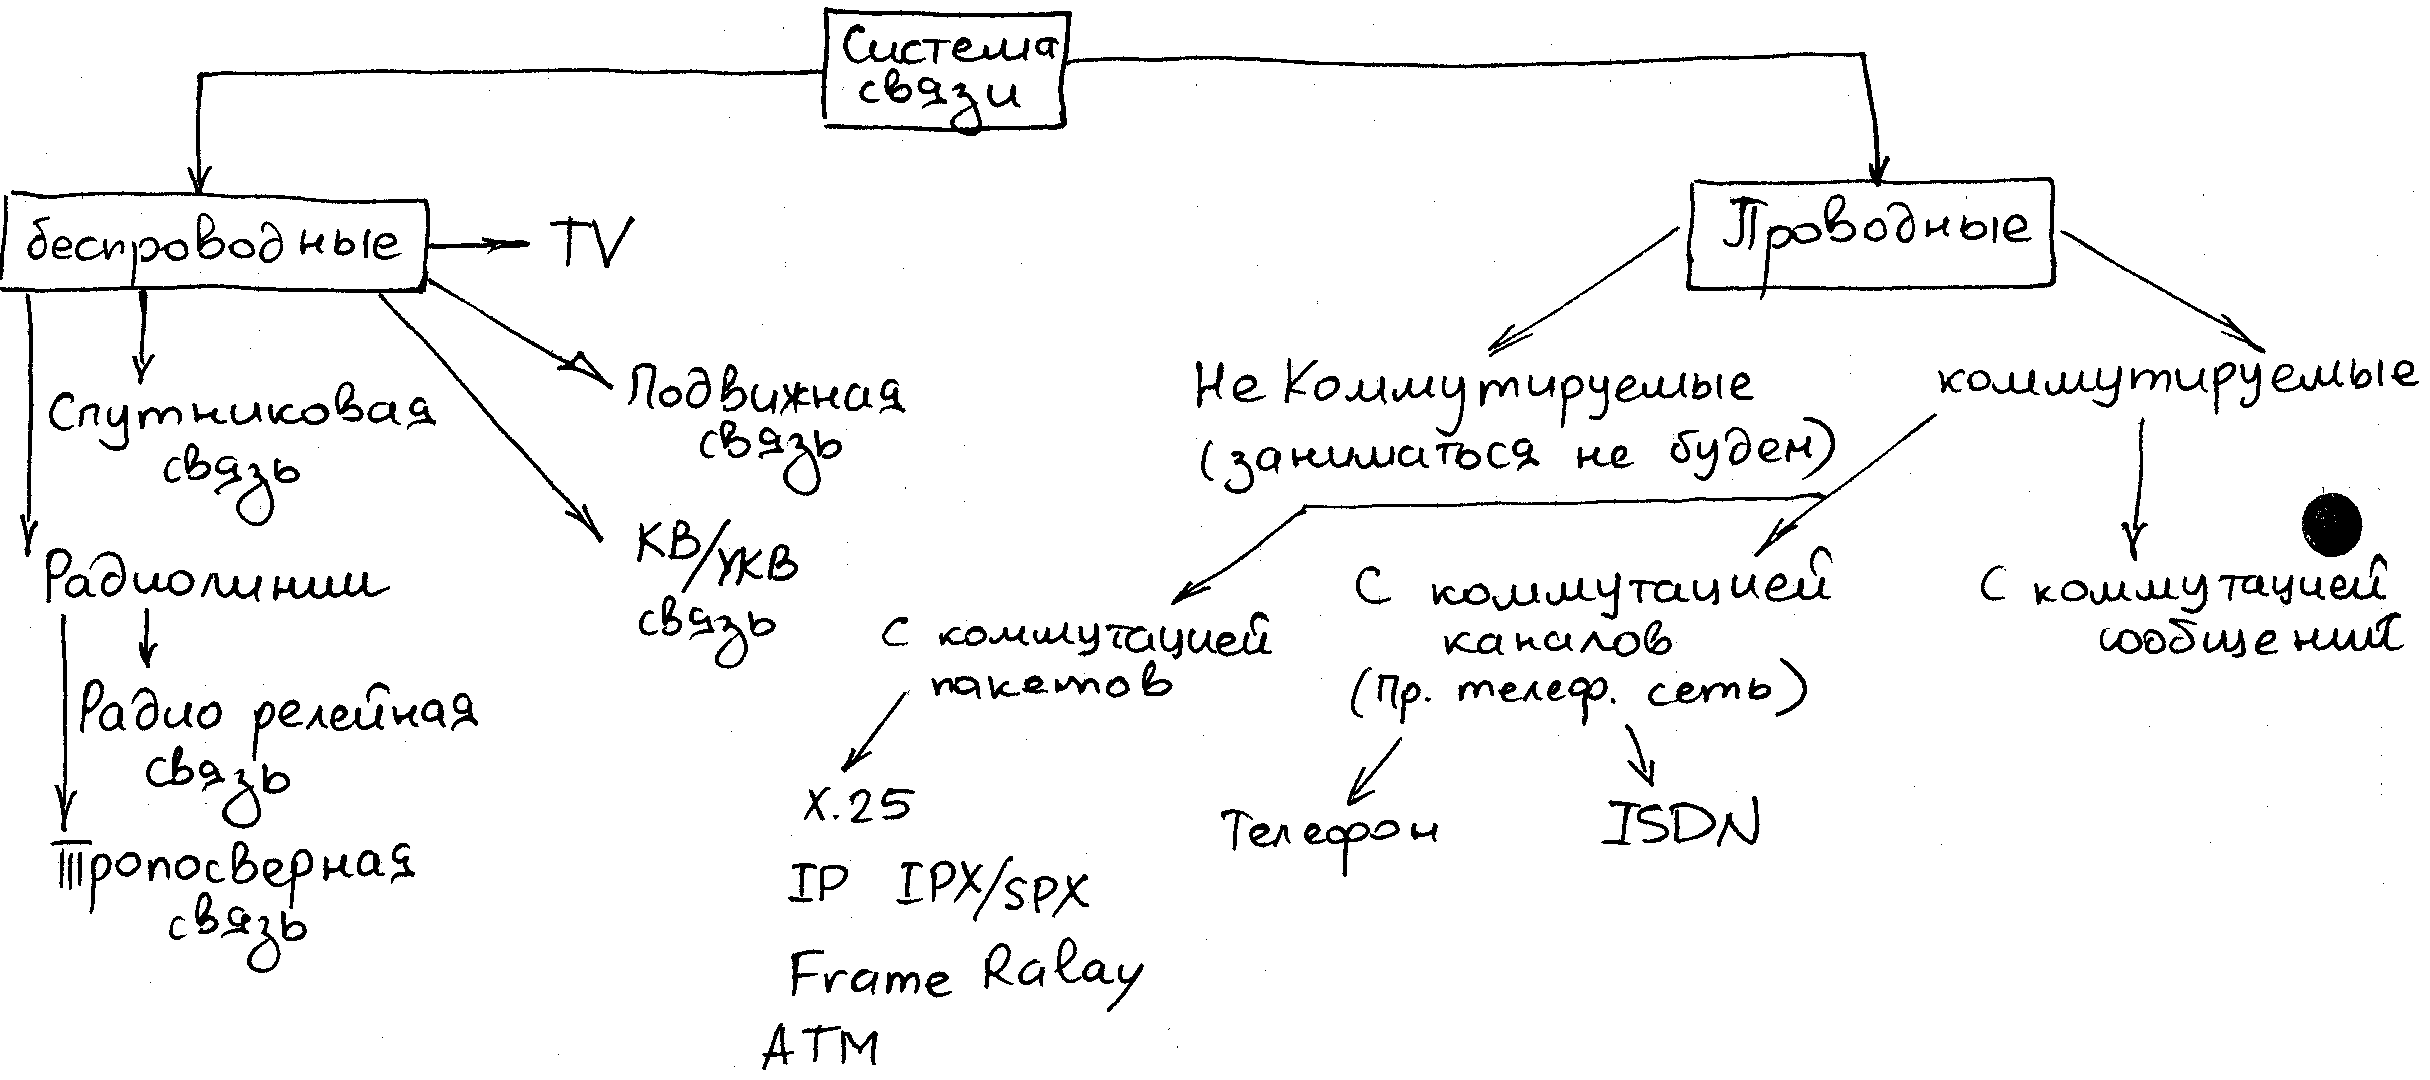 Система
связи
беспроводные
TV
Проводные
Спутниковая
связь
Подвижная
связь
Не Коммутируемые
(заниматься не будем)
коммутируемые
Радиолинии
КВ/УКВ
связь
С коммутацией
пакетов
С коммутацией
каналов
(Пр. телеф. сеть)
С коммутацией
сообщений
Радио релейная
связь
Тропосверная
связь
X.25
IP IPX/SPX
Frame Ralay
ATM
Телефон
ISDN